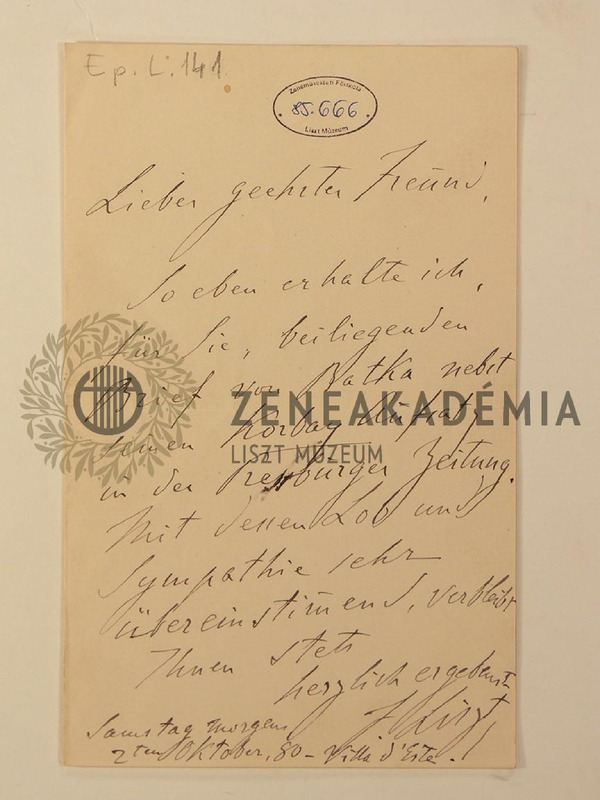 Ep. L. 141
Zeneművészeti Főiskola
85.666
Liszt Múzeum
Lieber geehrter Freund,
So eben erhalte ich,
für Sie, beiliegenden
Brief von Batka nebst
seinen Korbay Aufsatz
in der Pressburger Zeitung.
Mit dessen Lob und
Sympathie sehr
übereinstim̄end, verbleibt
Ihnen stets
herzlich ergebenst
F. Liszt,
Samstag Morgens
2ten Oktober, 80 – Villa d'Este.
ZENEAKADÉMIA
LISZT MÚZEUM